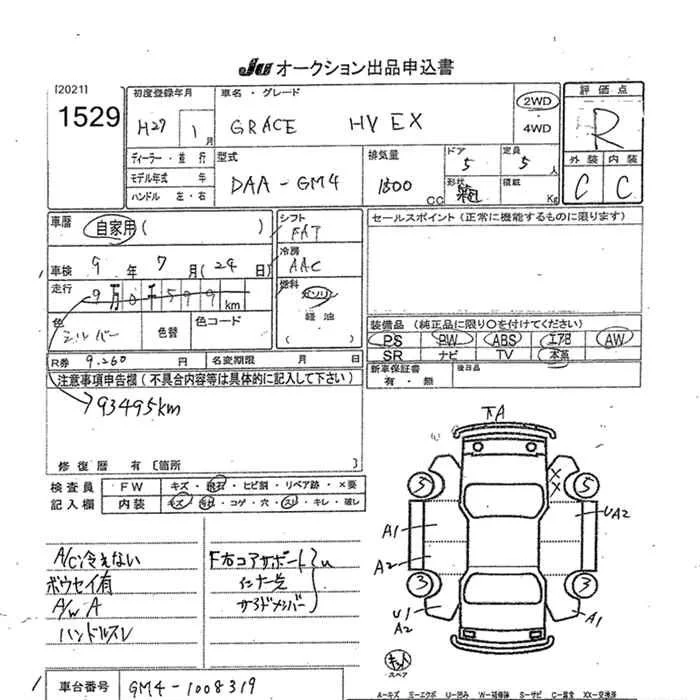 JU オークション出品申込書
[2021]
1529
初度登録年月
H27 1月
車名・グレード
GRACE HV EX
2WD
・
4WD
評価点
R
ディーラー・並行
モデル年式 年
ハンドル 左・右
型式
DAA-GM4
排気量
1500 CC
ドア
5
定員
5人
形状
積載
Kg
外装 内装
C C
車歴 自家用( )
シフト
FAT
セールスポイント(正常に機能するものに限ります)
車検 9年 7月(24日)
冷房
AAC
走行 9万0千599km
燃料
ガソリン
軽油
( )
色
シルバー
色替
色コード
装備品(純正品に限り○を付けてください)
PS PW ABS エアB AW
SR ナビ TV 本革
R券 9.260円
名変期限 月 日
新車保証書
有・無
後日品
注意事項申告欄(不具合内容等は具体的に記入して下さい)
93495km
修復歴 有〔箇所 〕
検査員
記入欄
FW キズ・飛石・ヒビ割・リペア跡・×要
内装 キズ・・コゲ・穴・スレ・キレ・破レ
下A
3 5
X
X
A1 UA2
A2
3 3
U1
A2
A1
A/C冷えない
ボウセイ有
A/W A
ハンドルスレ
F右コアサポート
インナー
サイドメンバー
u
スペア
車台番号 GM4-1008319
A-キズ E-エクボ U-凹み W-補修跡 S-サビ C-腐食 XX-交換済